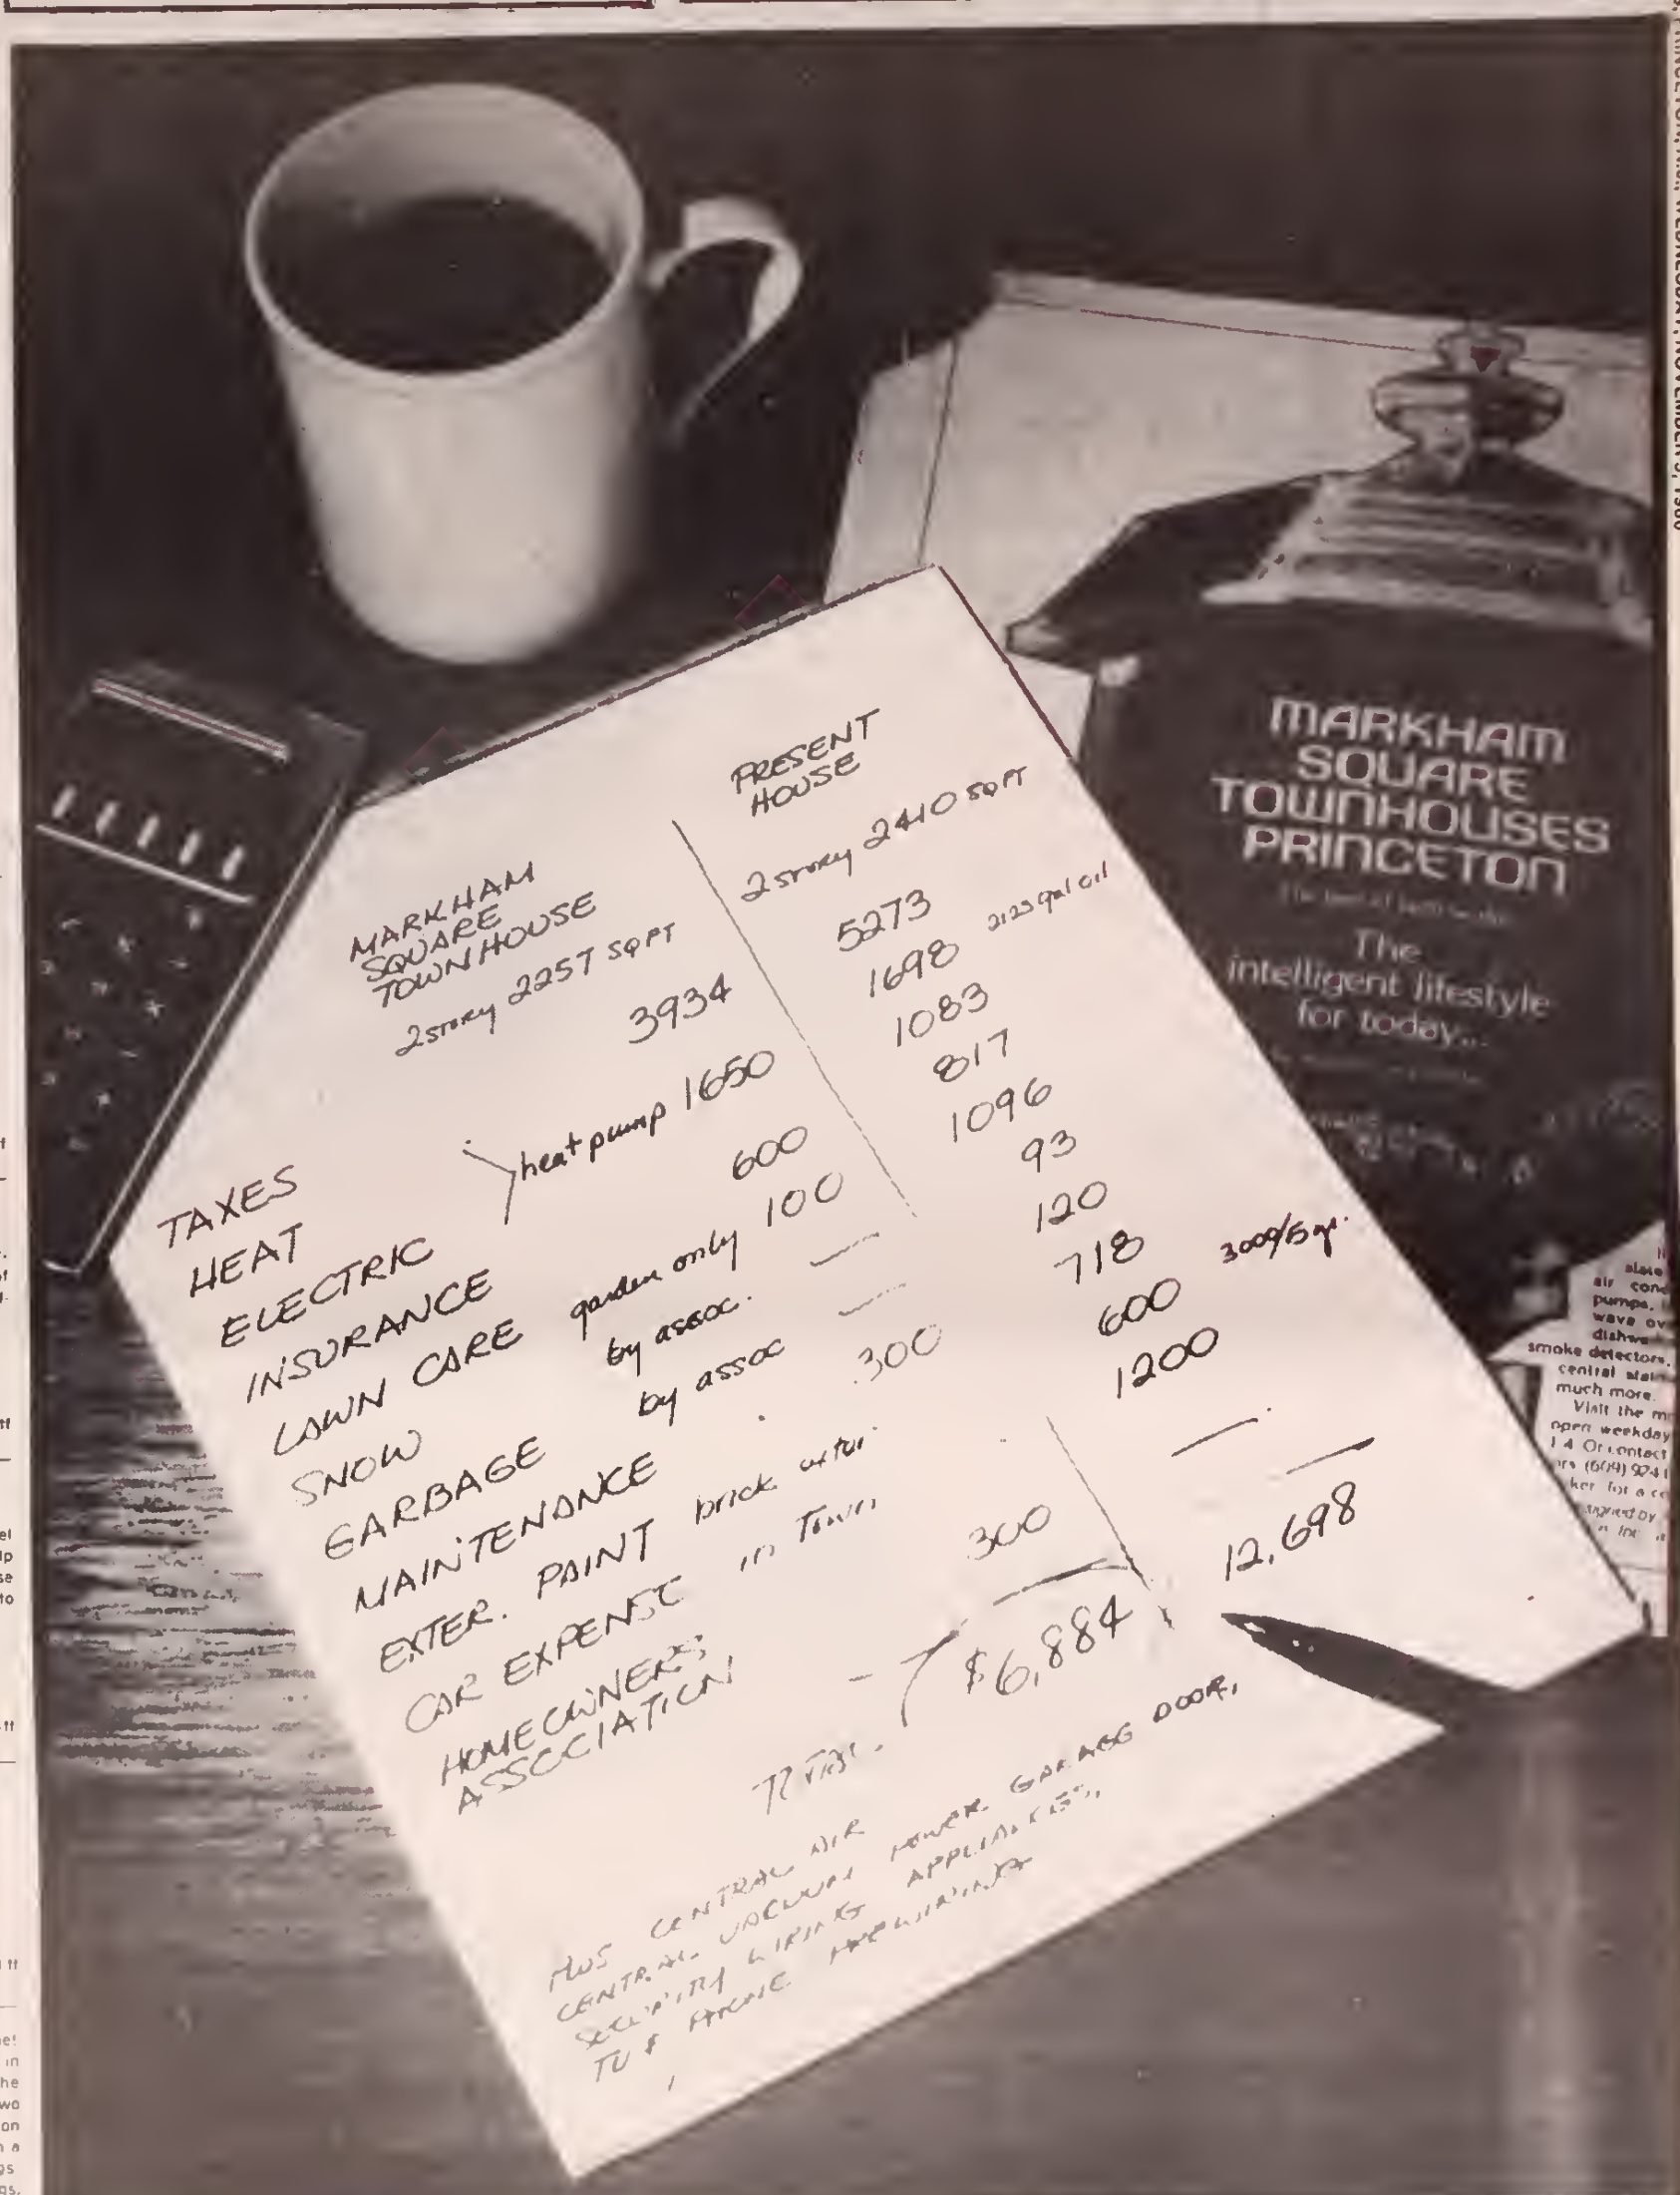 PRESENT
HOUSE
2 story 2410 SQ FT
MARKHAM
SQUARE
TOWNHOUSE
2 story 2257 SQ FT
TAXES 3934 5273
HEAT 1698 2123 gal oil
heat pump 1650
ELECTRIC 1083
INSURANCE 600 817
LAWN CARE garden only 100 1096
SNOW by assoc. — 93
GARBAGE by assoc — 120
MAINTENANCE 300 718
EXTER. PAINT brick 600 3000/5 yr.
CAR EXPENSE in Town 300 1200
HOMEOWNERS
ASSOCIATION —
$6,884 12,698
TOTAL
PLUS CENTRAL AIR
CENTRAL VACUUM POWER GARAGE DOOR,
SECURITY WIRING APPLIANCES,
TV & PHONE PREWIRING
MARKHAM
SQUARE
TOWNHOUSES
PRINCETON
The
intelligent lifestyle
for today...
slate
air cond
pumps,
wave ov
dishwa
smoke detectors,
central
much more.
Visit the
open weekday
1-4 Or contact
(609) 924
for a
signed by